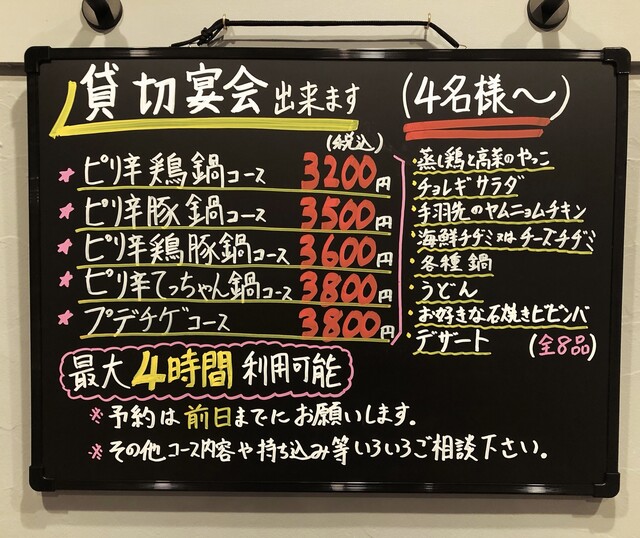 貸切宴会出来ます (4名様〜)
(税込)
★ピリ辛鶏鍋コース 3200円
★ピリ辛豚鍋コース 3500円
★ピリ辛鶏豚鍋コース 3600円
★ピリ辛てっちゃん鍋コース 3800円
★プデチゲコース 3800円
・蒸し鶏と高菜のやっこ
・チョレギサラダ
・手羽先のヤムニョムチキン
・海鮮チヂミ又はチーズチヂミ
・各種鍋
・うどん
・お好きな石焼きビビンバ
・デザート (全8品)
最大4時間利用可能
※予約は前日までにお願いします。
※その他コース内容や持ち込み等いろいろご相談下さい。